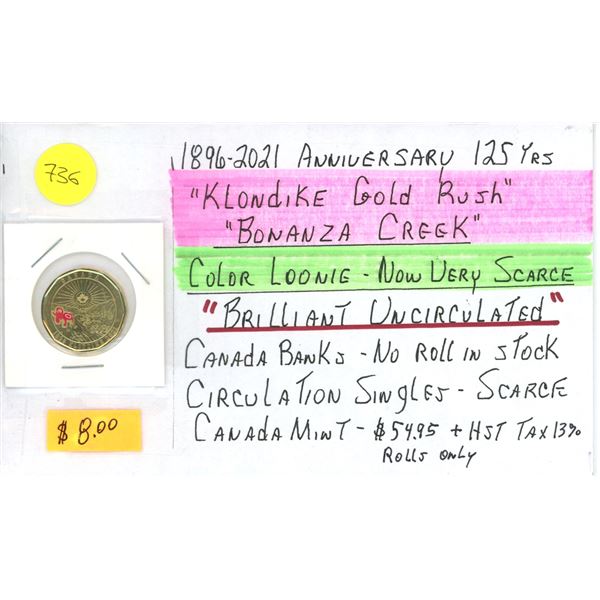 736
1896-2021 ANNIVERSARY 125 YRS
"KLONDIKE GOLD RUSH"
"BONANZA CREEK"
COLOR LOONIE - NOW VERY SCARCE
"BRILLIANT UNCIRCULATED"
CANADA BANKS - NO ROLL IN STOCK
CIRCULATION SINGLES - SCARCE
$ 8.00
CANADA MINT - $54.95 + HST TAX 13%
ROLLS ONLY